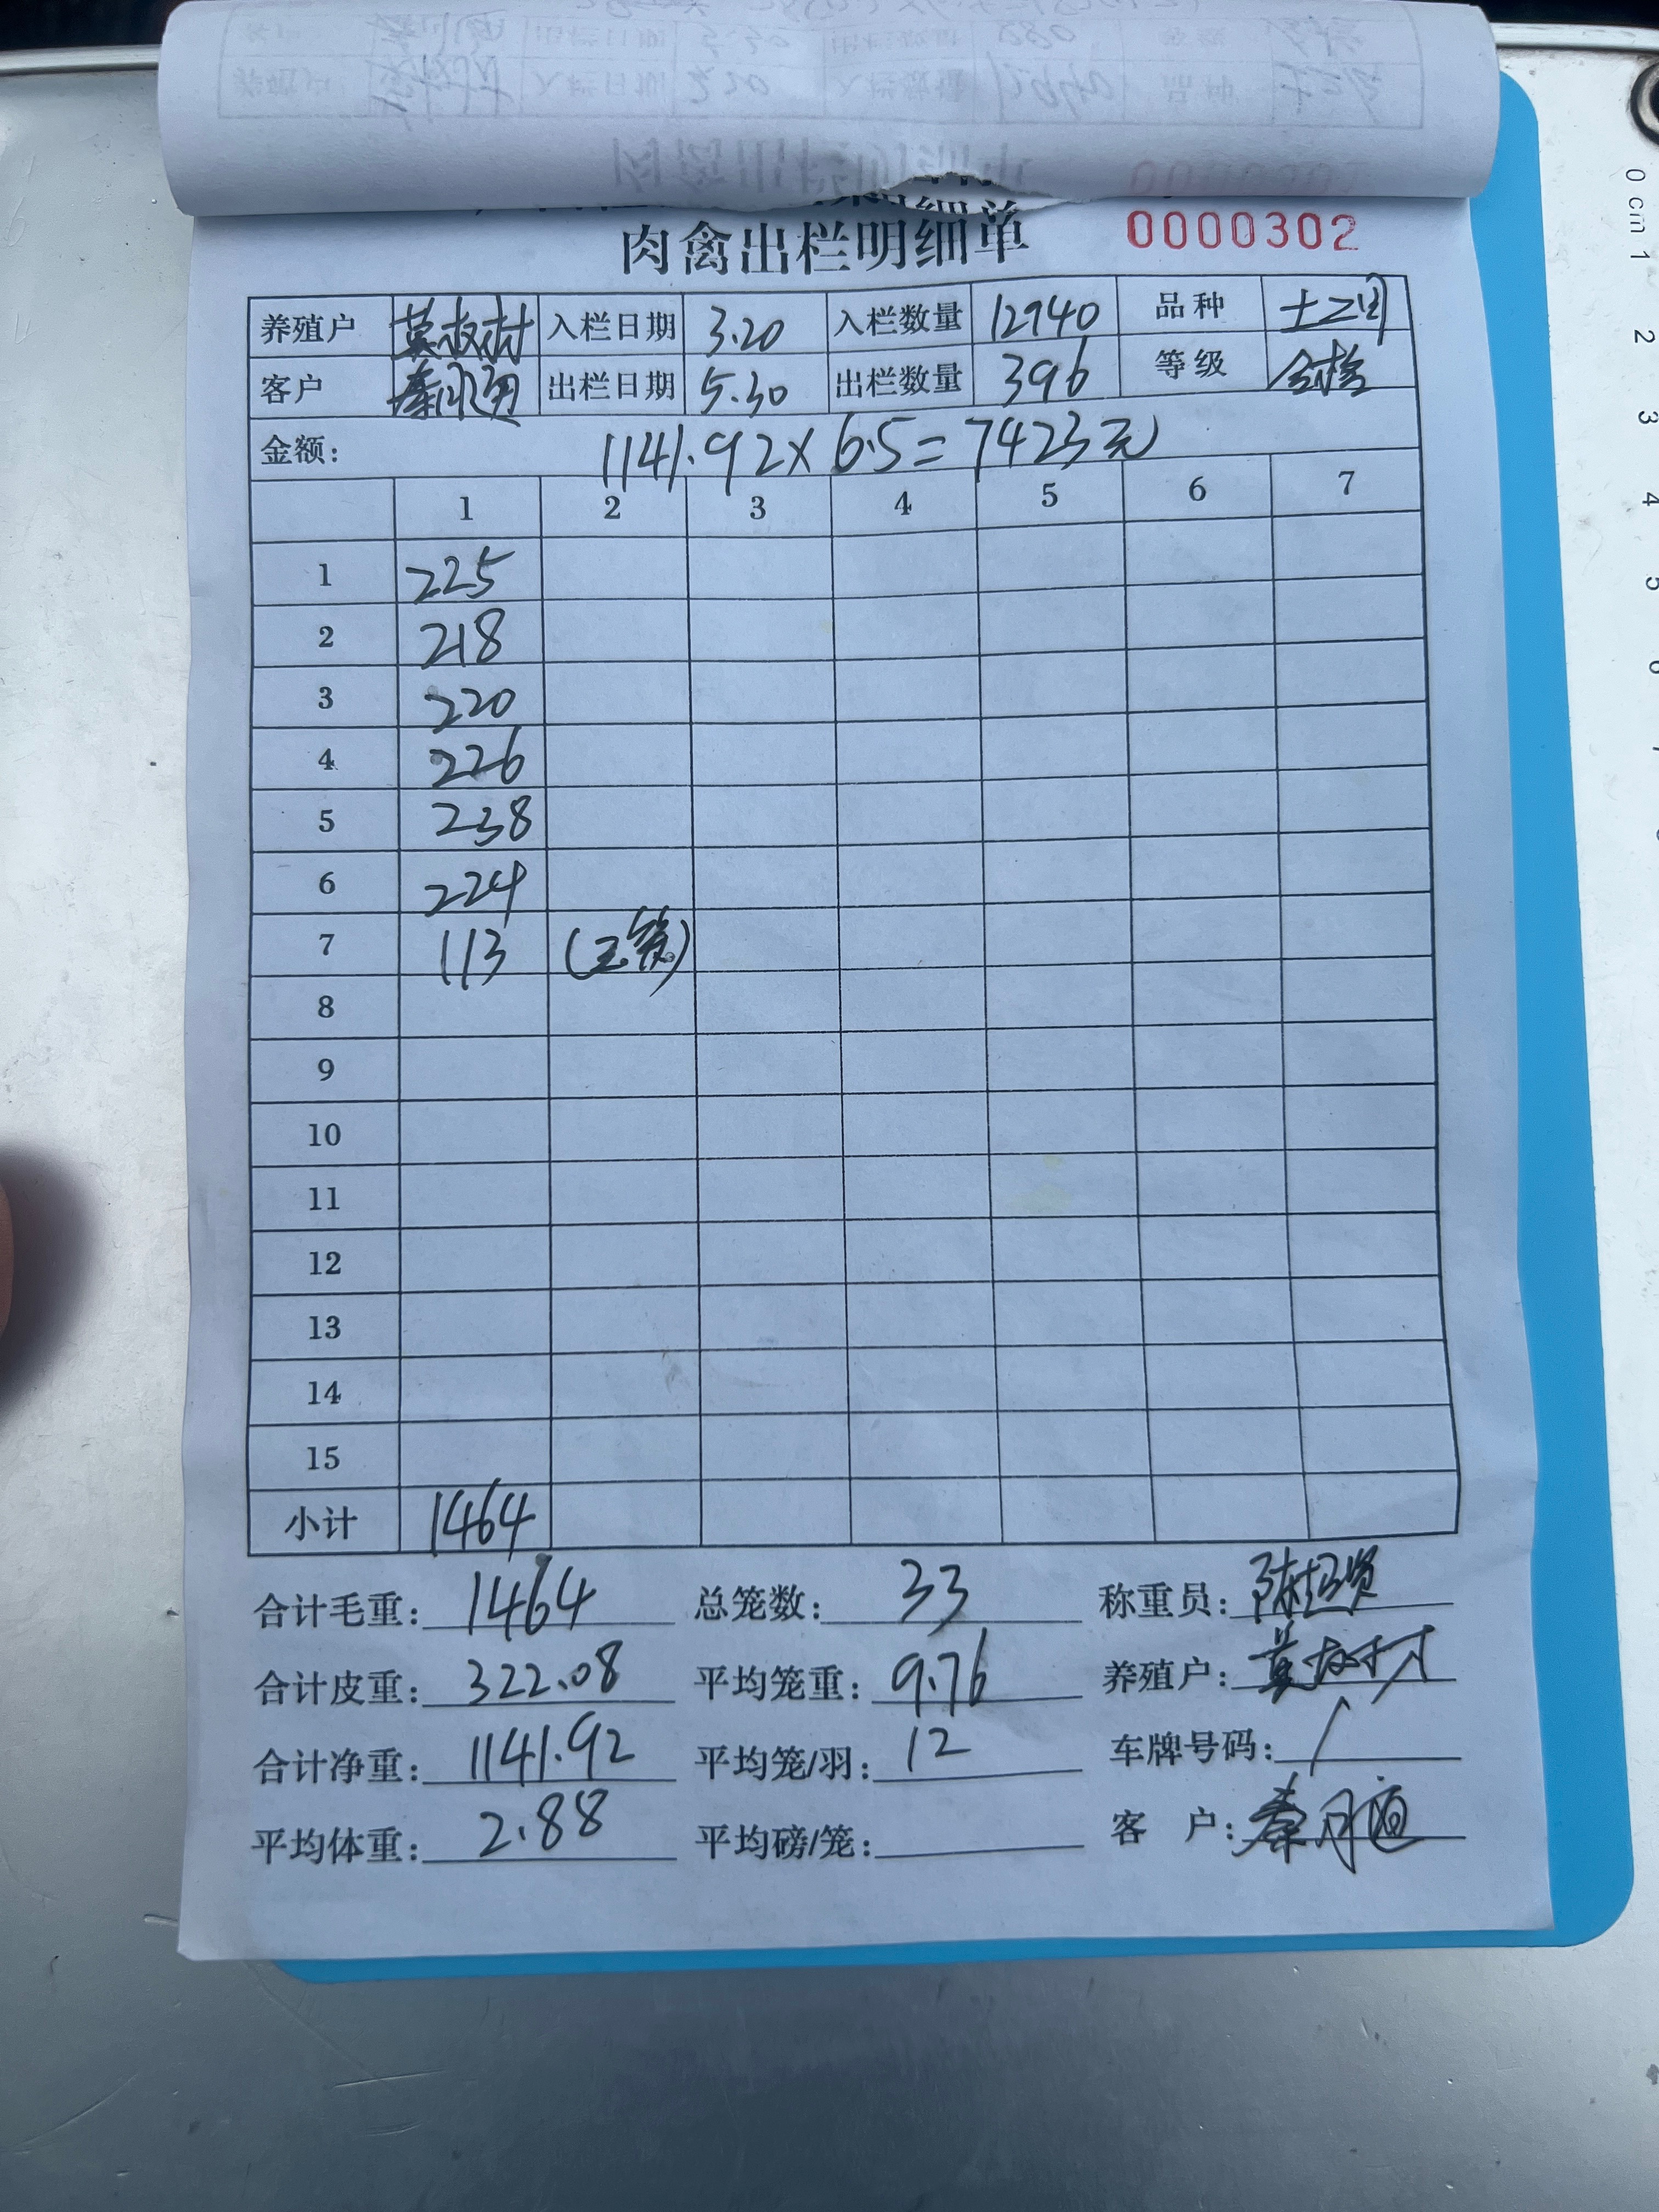 肉禽出栏明细单 0000302
养殖户 莫叔村 入栏日期 3.20 入栏数量 12940 品种 土二闭
客户 秦 出栏日期 5.30 出栏数量 396 等级 合格
金额: 1141.92×6.5=7423元
1 2 3 4 5 6 7
1 225
2 218
3 220
4 226
5 238
6 224
7 113
8
9
10
11
12
13
14
15
小计 1464
合计毛重: 1464 总笼数: 33 称重员: 陈
合计皮重: 322.08 平均笼重: 9.76 养殖户: 莫
合计净重: 1141.92 平均笼/羽: 12 车牌号码: /
平均体重: 2.88 平均磅/笼: 客户: 秦
0 cm 1 2 3 4 5 6 7